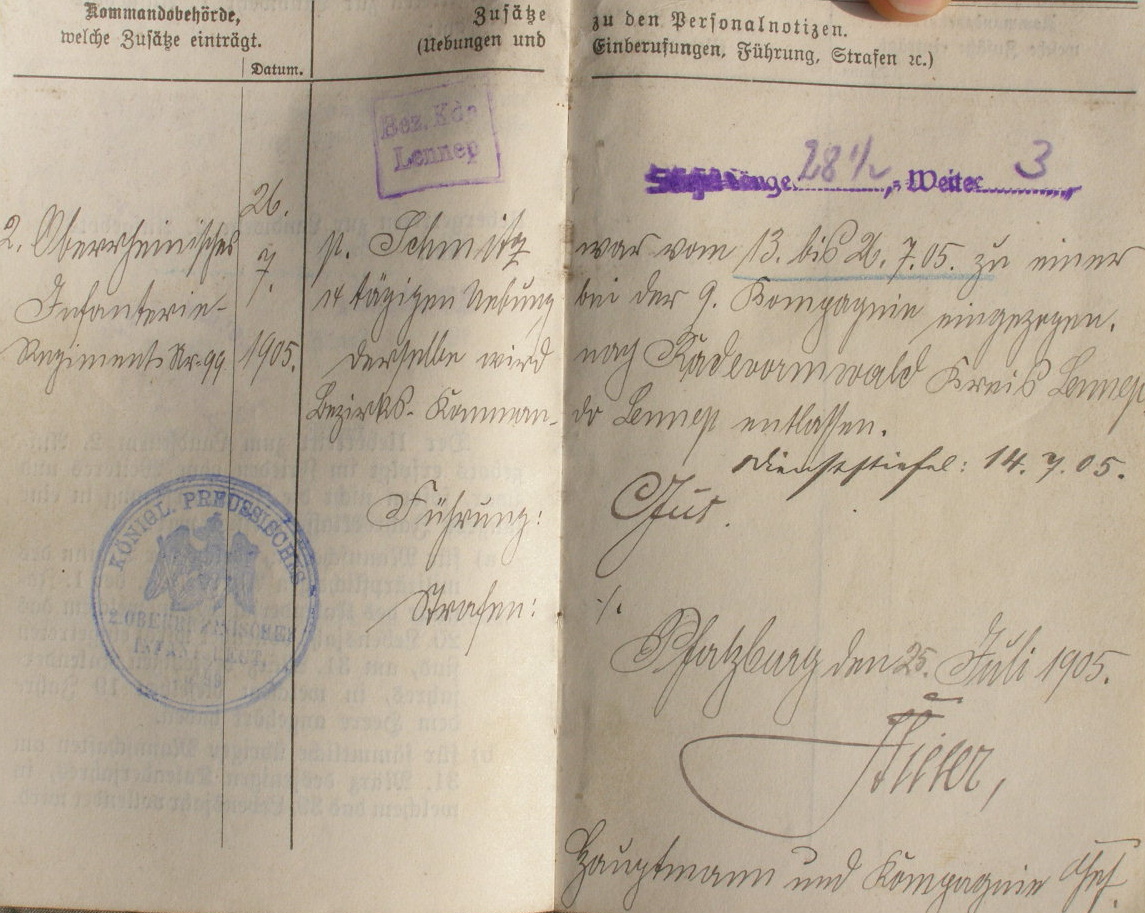 Kommandobehörde,
welche Zusätze einträgt.
Datum.
Zusätze zu den Personalnotizen.
(Uebungen und Einberufungen, Führung, Strafen ꝛc.)
Bez. Kdo
Lennep
länge 28 1/2, Weite 3
26.
7.
1905.
2. Oberrheinisches
Infanterie-
Regiment Nr. 99
p. Schmitz war vom 13. bis 26. 7. 05. zu einer
14 tägigen Uebung bei der 9. Kompagnie eingezogen.
derselbe wird nach Radevormwald Kreis Lennep
Bezirks-Komman- do Lennep entlassen.
Dienststiefel: 14. 7. 05.
Führung: Gut.
Strafen: ./.
KÖNIGL. PREUSSISCHES
2. OBERRHEINISCHES
Pfalzburg den 25. Juli 1905.
Hauptmann und Kompagnie Chef.